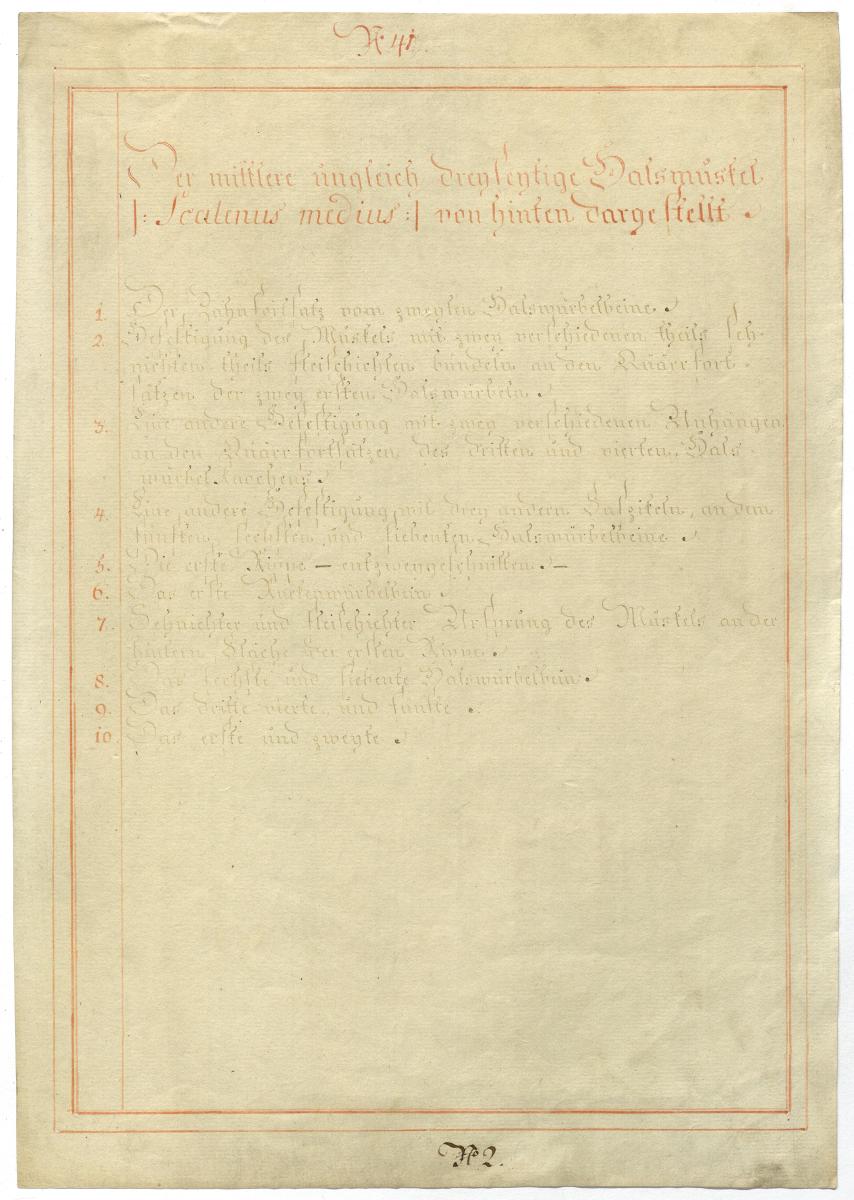 N<sup>o</sup> 41.
Der mittlere ungleich dreyseytige Halsmuskel
|: Scalenus medius :| von hinten dargestellt.
1. Der Zahnfortsatz vom zweyten Halswürbelbeine.
2. Befestigung des Muskels mit zwey verschiedenen theils seh-
nichten theils fleischichten bündeln an den Quärrfort-
sätzen der zwey ersten Halswürbeln.
3. Eine andere Befestigung mit zwey verschiedenen Anhängen
an den Quärrfortsätzen des dritten und vierten Hals-
würbel Knochens.
4. Eine andere Befestigung mit drey andern, an dem
fünften, sechsten und siebenten Halswürbelbeine.
5. Die erste Rippe – entzweygeschnitten. –
6. Das erste Ruckenwürbelbein.
7. Sehnichter und fleischichter Ursprung des Muskels an der
hintern Fläche der ersten Rippe.
8. Das sechste und siebente Halswürbelbein.
9. Das dritte vierte und fünfte.
10. Das erste und zweyte.
N<sup>o</sup> 2.